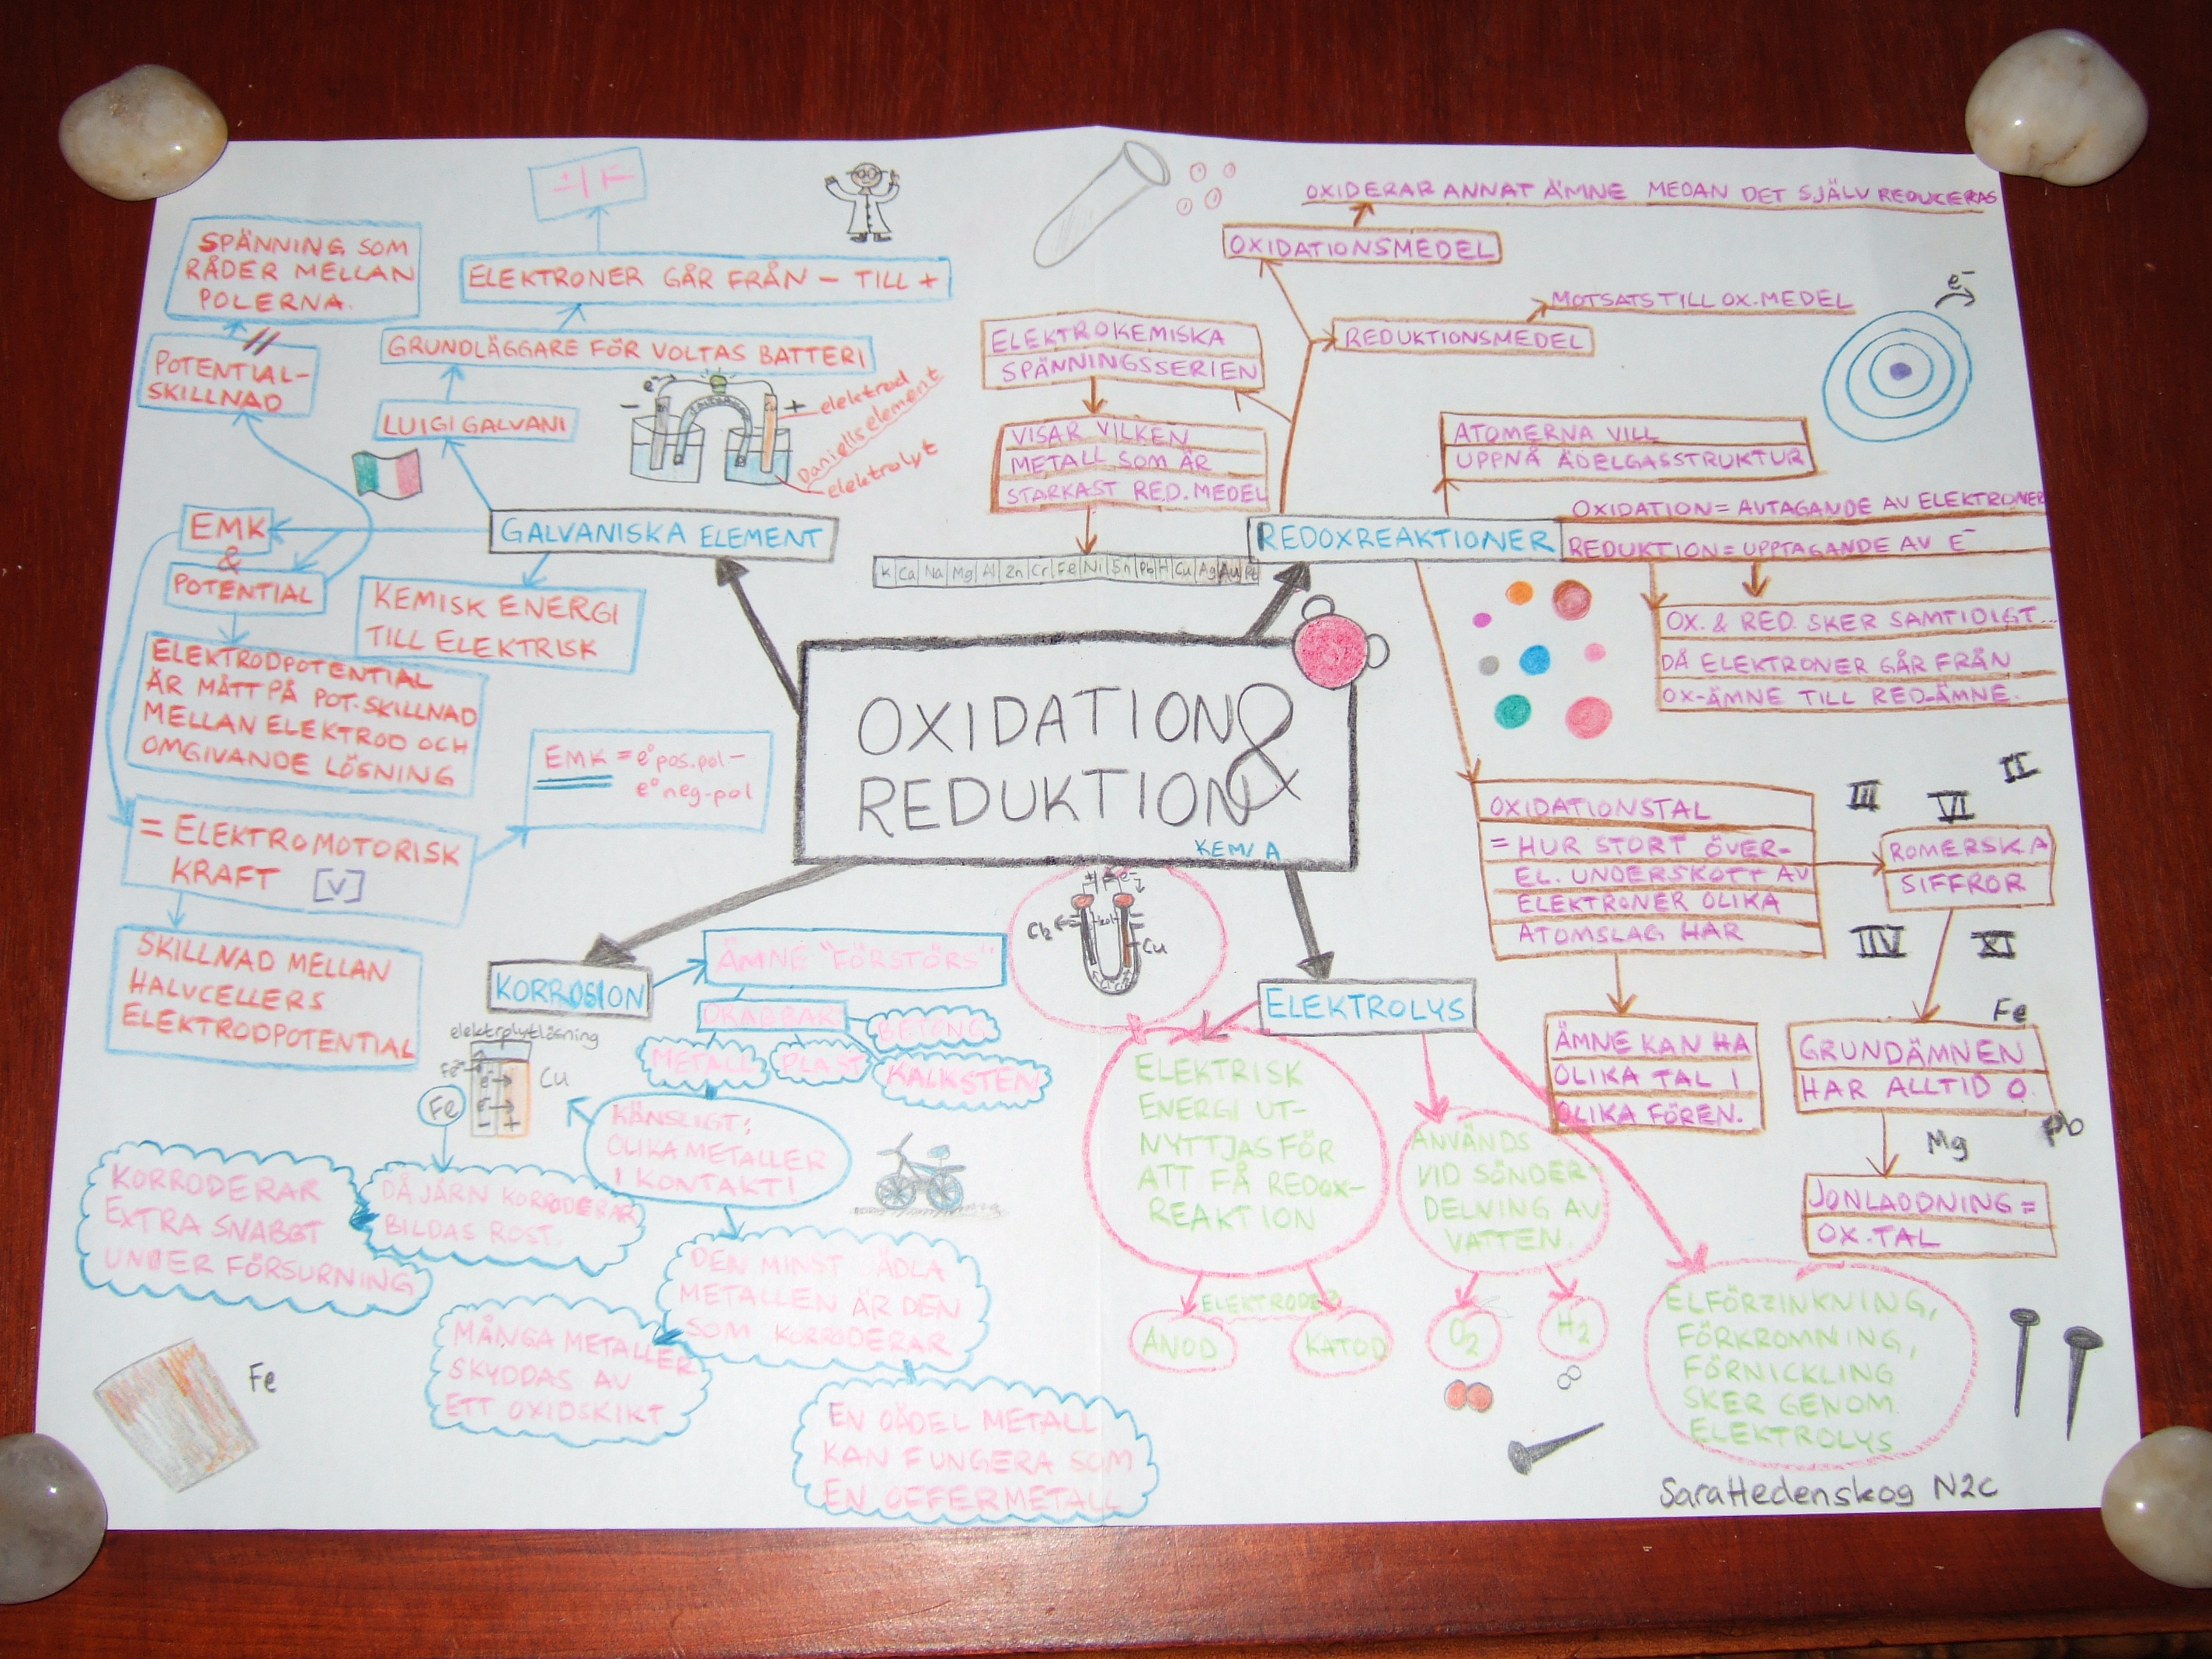 OXIDATION &
REDUKTION
KEMI A
GALVANISKA ELEMENT
LUIGI GALVANI
GRUNDLÄGGARE FÖR VOLTAS BATTERI
ELEKTRONER GÅR FRÅN – TILL +
SPÄNNING SOM
RÅDER MELLAN
POLERNA.
POTENTIAL-
SKILLNAD
EMK
&
POTENTIAL
KEMISK ENERGI
TILL ELEKTRISK
ELEKTRODPOTENTIAL
ÄR MÅTT PÅ POT.SKILLNAD
MELLAN ELEKTROD OCH
OMGIVANDE LÖSNING
= ELEKTROMOTORISK
KRAFT [V]
EMK = e° pos.pol –
e° neg-pol
SKILLNAD MELLAN
HALVCELLERS
ELEKTRODPOTENTIAL
e⁻
–
+
elektrod
Daniells element
elektrolyt
REDOXREAKTIONER
OXIDERAR ANNAT ÄMNE MEDAN DET SJÄLV REDUCERAS
OXIDATIONSMEDEL
MOTSATS TILL OX.MEDEL
REDUKTIONSMEDEL
e⁻
ELEKTROKEMISKA
SPÄNNINGSSERIEN
VISAR VILKEN
METALL SOM ÄR
STARKAST RED.MEDEL
K Ca Na Mg Al Zn Cr Fe Ni Sn Pb H Cu Ag Au Pt
ATOMERNA VILL
UPPNÅ ÄDELGASSTRUKTUR
OXIDATION = AVTAGANDE AV ELEKTRONER
REDUKTION = UPPTAGANDE AV E⁻
OX. & RED. SKER SAMTIDIGT...
DÅ ELEKTRONER GÅR FRÅN
OX-ÄMNE TILL RED-ÄMNE.
OXIDATIONSTAL
= HUR STORT ÖVER-
EL. UNDERSKOTT AV
ELEKTRONER OLIKA
ATOMSLAG HAR
III
VI
II
ROMERSKA
SIFFROR
IIV
XI
ÄMNE KAN HA
OLIKA TAL I
OLIKA FÖREN.
Fe
GRUNDÄMNEN
HAR ALLTID 0.
Mg
Pb
JONLADDNING =
OX.TAL
KORROSION
ÄMNE "FÖRSTÖRS"
DRABBAR
METALL
PLAST
BETONG
KALKSTEN
elektrolytlösning
Cu
Fe
KÄNSLIGT:
OLIKA METALLER
I KONTAKT!
DÅ JÄRN KORRODERAR
BILDAS ROST.
KORRODERAR
EXTRA SNABBT
UNDER FÖRSURNING
DEN MINST ÄDLA
METALLEN ÄR DEN
SOM KORRODERAR
MÅNGA METALLER
SKYDDAS AV
ETT OXIDSKIKT
EN OÄDEL METALL
KAN FUNGERA SOM
EN OFFERMETALL
Fe
ELEKTROLYS
Cl₂
kol
Cu
e⁻
ELEKTRISK
ENERGI UT-
NYTTJAS FÖR
ATT FÅ REDOX-
REAKTION
ELEKTRODER
ANOD
KATOD
ANVÄNDS
VID SÖNDER-
DELNING AV
VATTEN.
O₂
H₂
ELFÖRZINKNING,
FÖRKROMNING,
FÖRNICKLING
SKER GENOM
ELEKTROLYS
Sara Hedenskog N2C